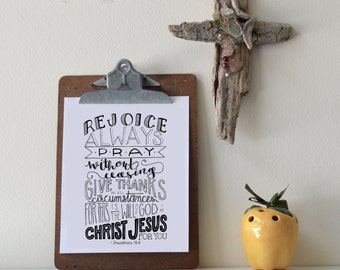 REJOICE
ALWAYS
PRAY
without
ceasing
GIVE THANKS
IN ALL
circumstances
FOR THIS IS THE WILL OF GOD IN
CHRIST JESUS
FOR YOU